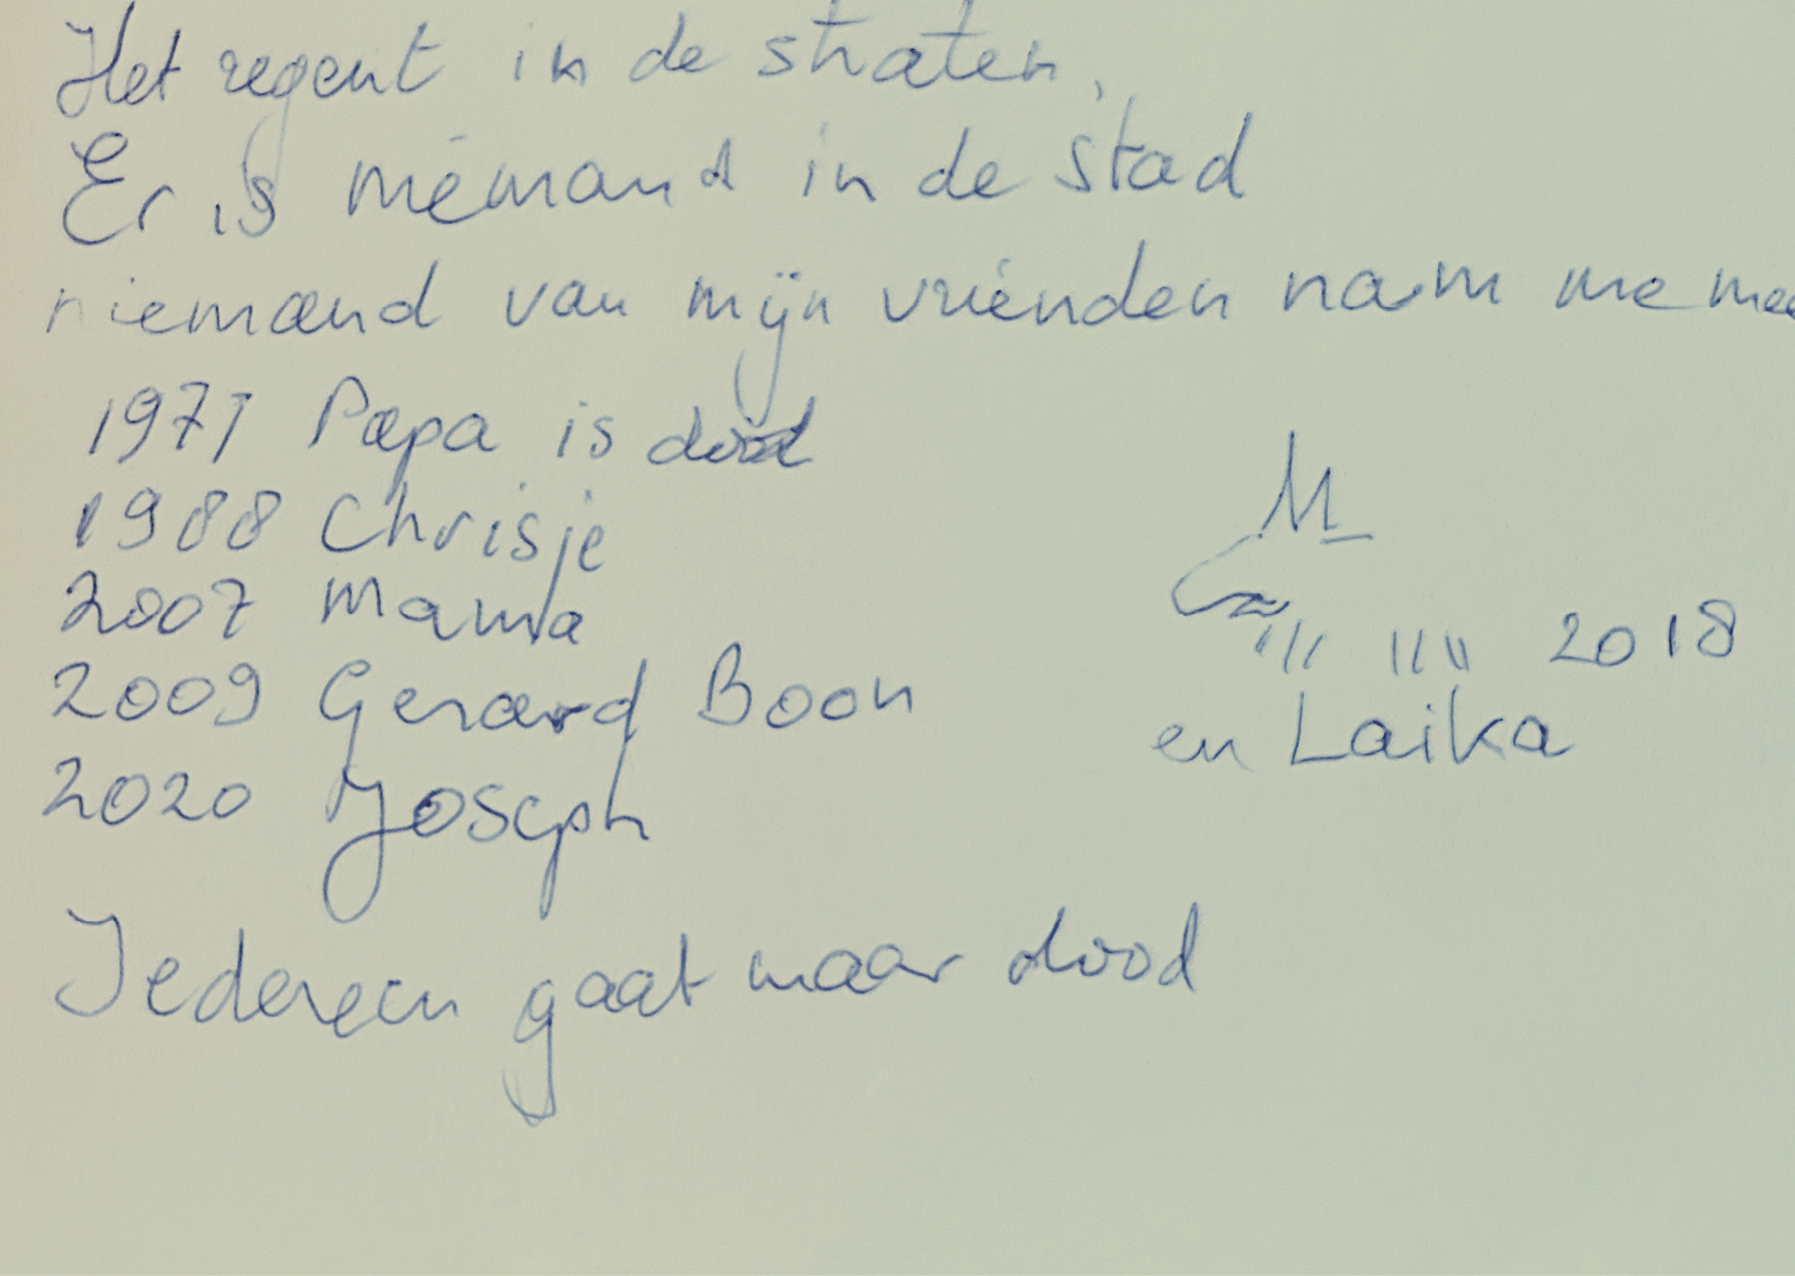 Het regent in de straten,
Er is niemand in de stad
niemand van mijn vrienden nam me mee
1977 Papa is dood
1988 Chrisje
2007 Mama
2009 Gerard Boon
2020 Joseph
2018
en Laika
Iedereen gaat maar dood